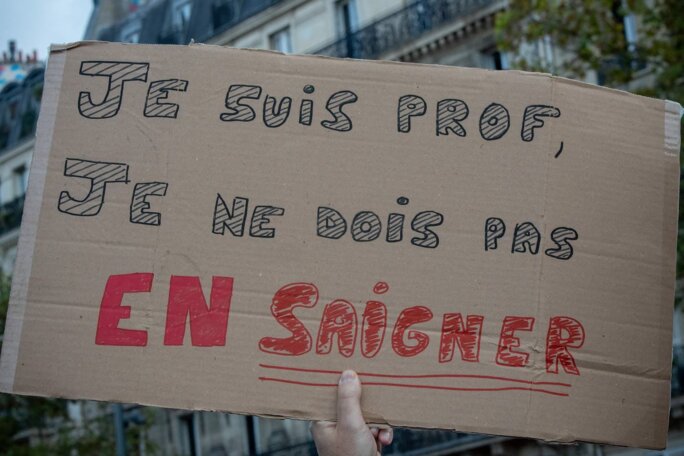 Je suis prof,
Je ne dois pas
EN SaiGNER